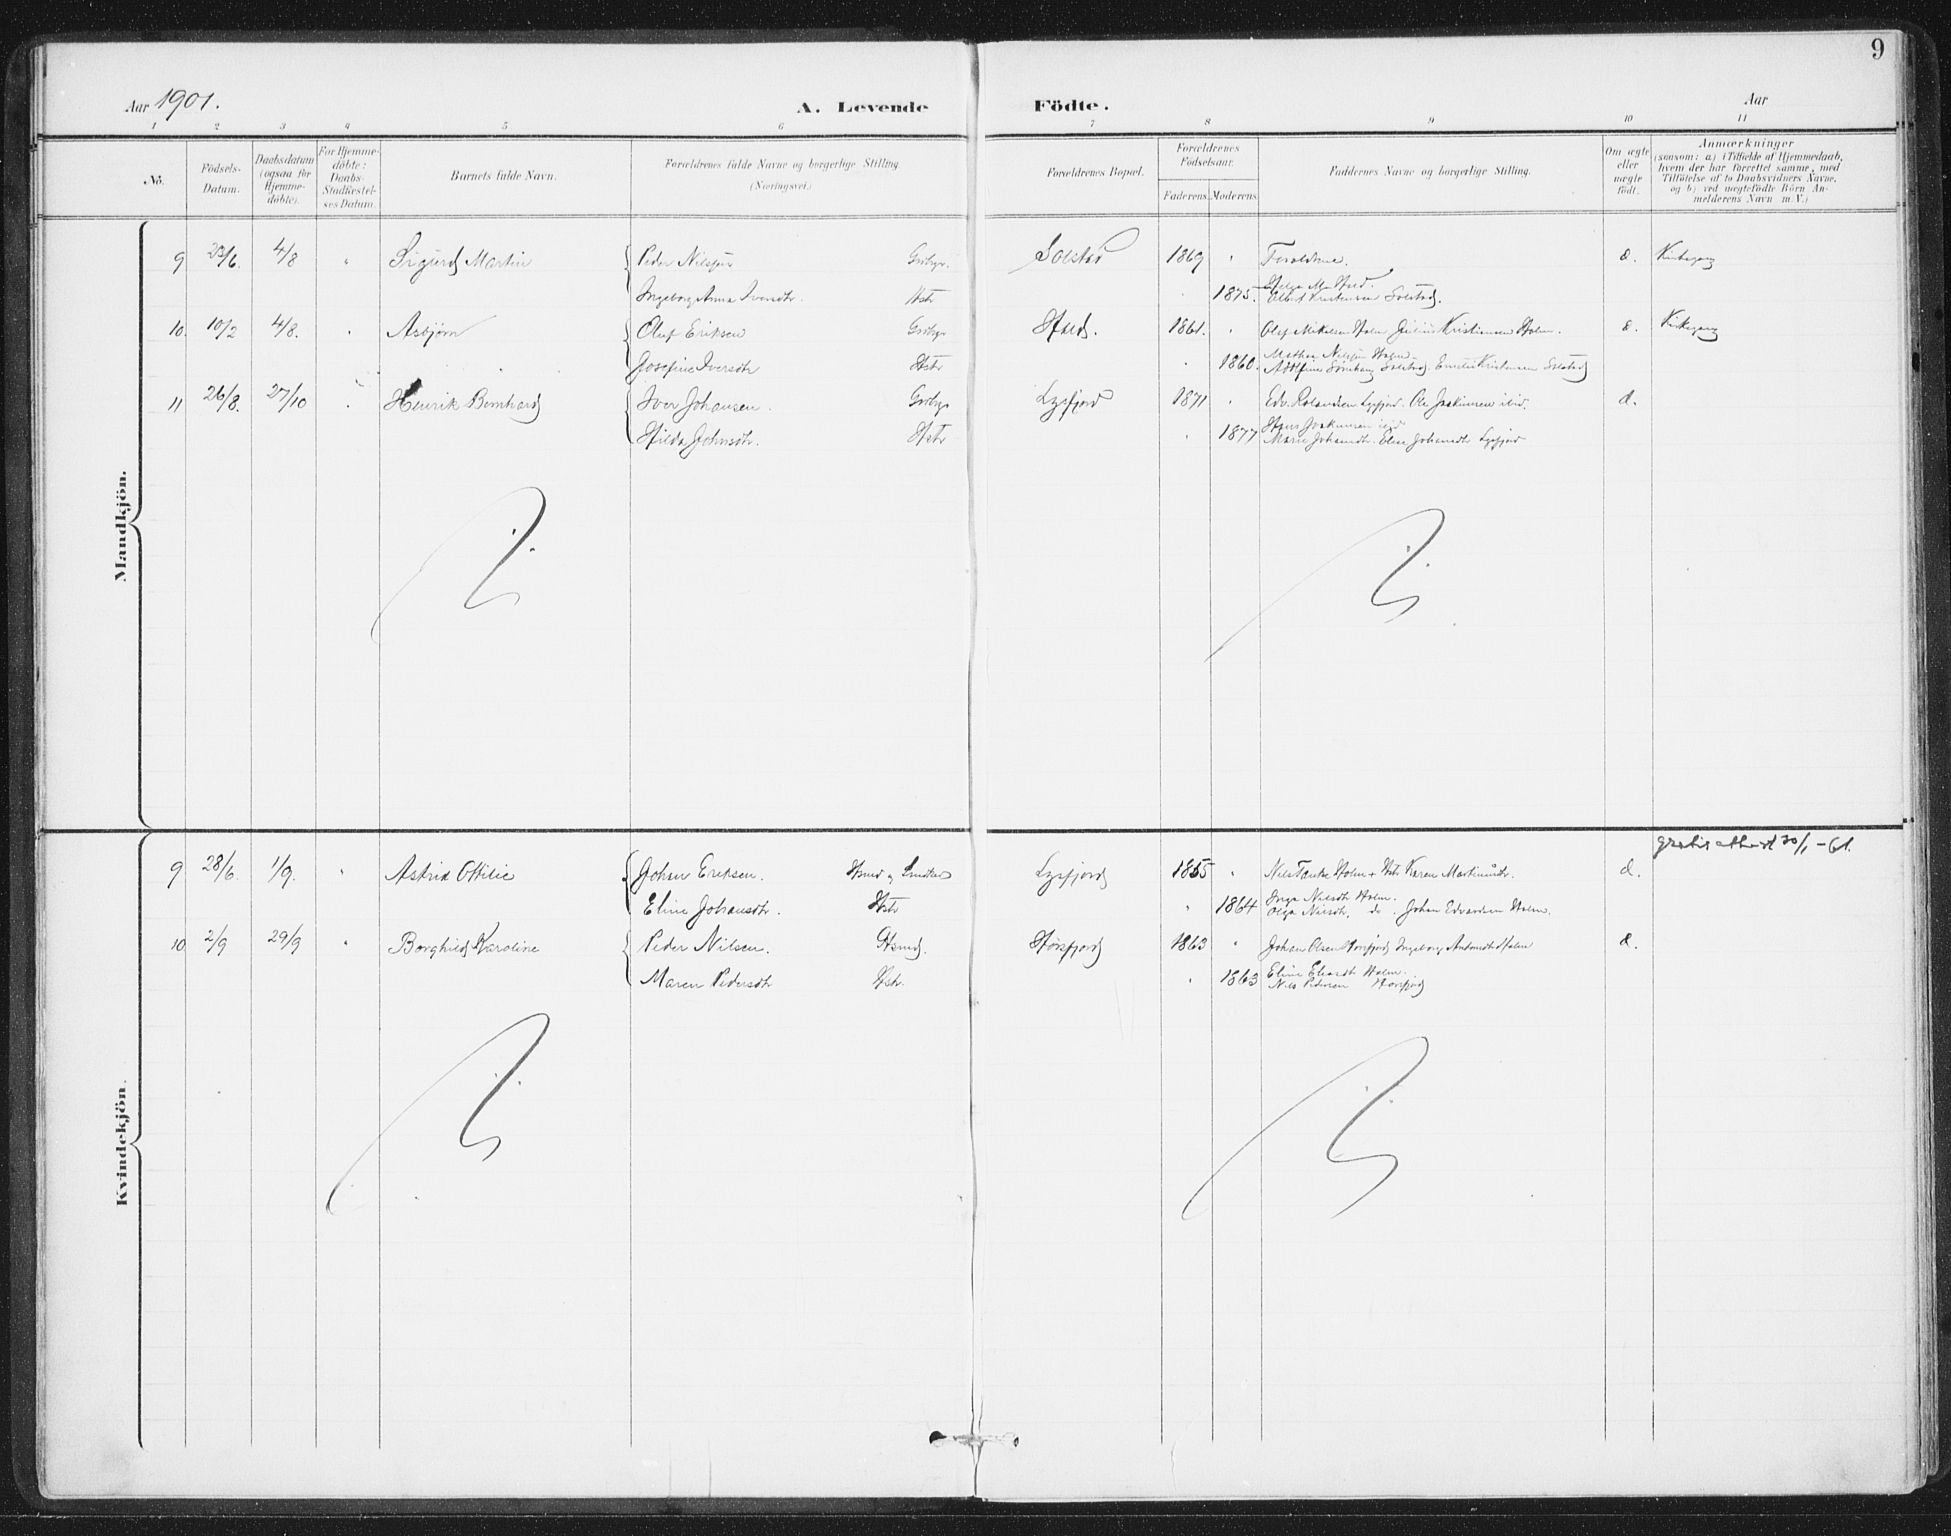 9
Aar 1901.
A. Levende Födte.
Aar
1 2 3 4 5 6 7 8 9 10 11
No.
Födsels-
Datum.
Daabsdatum
(ogsaa for
Hjemme-
döbte).
For Hjemme-
döbte:
Daabs-
Stadfæstel-
ses Datum.
Barnets fulde Navn.
Forældrenes fulde Navne og borgerlige Stilling.
(Næringsvei.)
Forældrenes Bopæl.
Forældrenes
Födselsaar.
Faderens. Moderens.
Faddernes Navne og borgerlige Stilling.
Om ægte
eller
uægte
födt.
Anmærkninger
(saasom: a) i Tilfælde af Hjemmedaab,
hvem der har forrettet samme, med
Tilföielse af to Daabsvidners Navne,
og b) ved uægtefödte Börn An-
melderens Navn m. V.)
Mandkjön.
9 4/8 " Sigurd Martin Peder Nilsen Solstad 1869 " Forældrene.
Ingeborg Anna Iversdtr. Hstr 1875. Albert Kristensen Solstad.
10. 10/2 4/8. Asbjørn Oluf Eriksen 1861. " Olaf Mikelsen Holm Julius Kristiansen Holm.
Josefine Iversdtr Hstr 1860. Mathea Nilsen Holm.
Solstad. Emilie Kristensen Solstad
11 26/8. 27/10 Henrik Bernhard Iver Johansen. Lysfjord 1871 " Edv. Rolandsen Lysfjord. Ole Joakimsen ibid.
Hilda Johnsdtr. Hstr 1877 Hans Joakimsen ibid
Marie Johansdtr. Eline Johansdtr Lysfjord
Kvindekjön.
30/1 - 61.
9 28/6. 1/9. " Astrid Ottilie Johan Eriksen. Lysfjord 1855 " Nils Holm + Hstr Karen
Eline Johansdtr. Hstr " 1864 Inga Nilsdtr Holm.
Olga Nilsdtr. do. Johan Edvardsen Holm.
10 2/9 29/9 " Borghild Karoline Peder Nilsen. Hsmd. Horsfjord 1863 " Johan Olsen Horsfjord Ingeborg Holm
Maren Pedersdtr Hstr. " 1863 Eline Holm.
Nils Pedersen Horsfjord